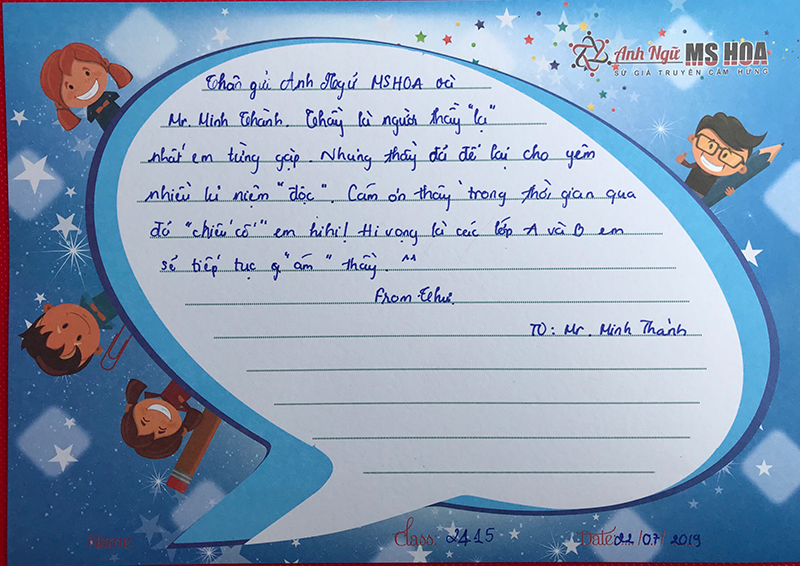 Anh Ngữ MS HOA
SỨ GIẢ TRUYỀN CẢM HỨNG
Thân gửi Anh Ngữ MSHOA và
Mr. Minh Thành. Thầy là người thầy "lạ"
nhất em từng gặp. Nhưng thầy đã để lại cho yêm
nhiều kỉ niệm "độc". Cám ơn thầy trong thời gian qua
đã "chiếu cố" em hihi! Hi vọng là các lớp A và B em
sẽ tiếp tục q "ám" thầy. ^^
From Thư.
TO: Mr. Minh Thành
Name:
Class: 2415
Date: 22/07/2019